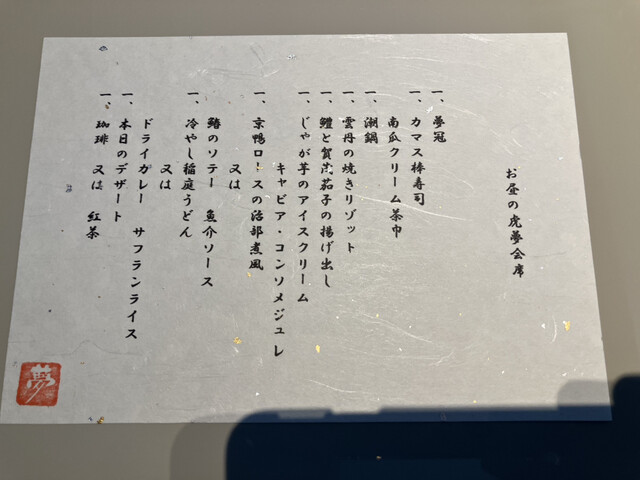 お昼の虎夢会席
一、夢冠
一、カマス棒寿司
南瓜クリーム茶巾
一、潮鍋
一、雲丹の焼きリゾット
一、鱧と賀茂茄子の揚げ出し
一、じゃが芋のアイスクリーム
キャビア・コンソメジュレ
一、京鴨ロースの治部煮風
又は
鰆のソテー 魚介ソース
一、冷やし稲庭うどん
又は
ドライカレー サフランライス
一、本日のデザート
一、珈琲 又は 紅茶
夢